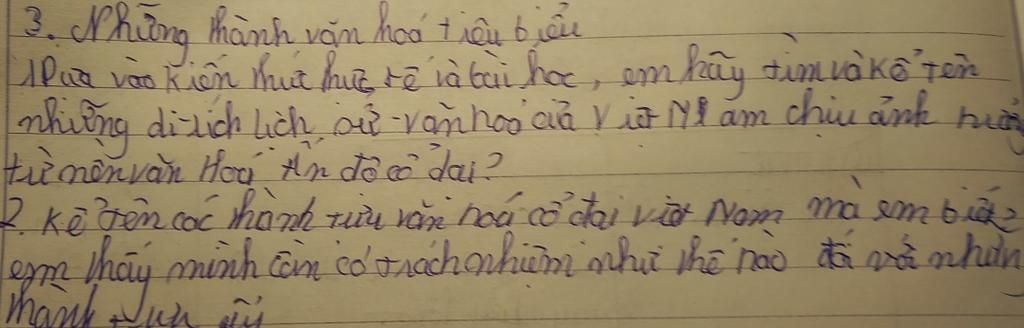 3. Những thành văn hoá tiêu biểu
1 Dựa vào kiến thức thực tế và bài học, em hãy tìm và kể tên
những di-tích lịch sử-văn hoá của Việt Nam chịu ảnh hưởng
từ nền văn Hoá Ấn độ cổ đại?
2. Kể tên các thành tựu văn hoá cổ đại việt Nam mà em biết?
em thấy mình cần có trách nhiệm như thế nào đối với những
thành tựu ấy